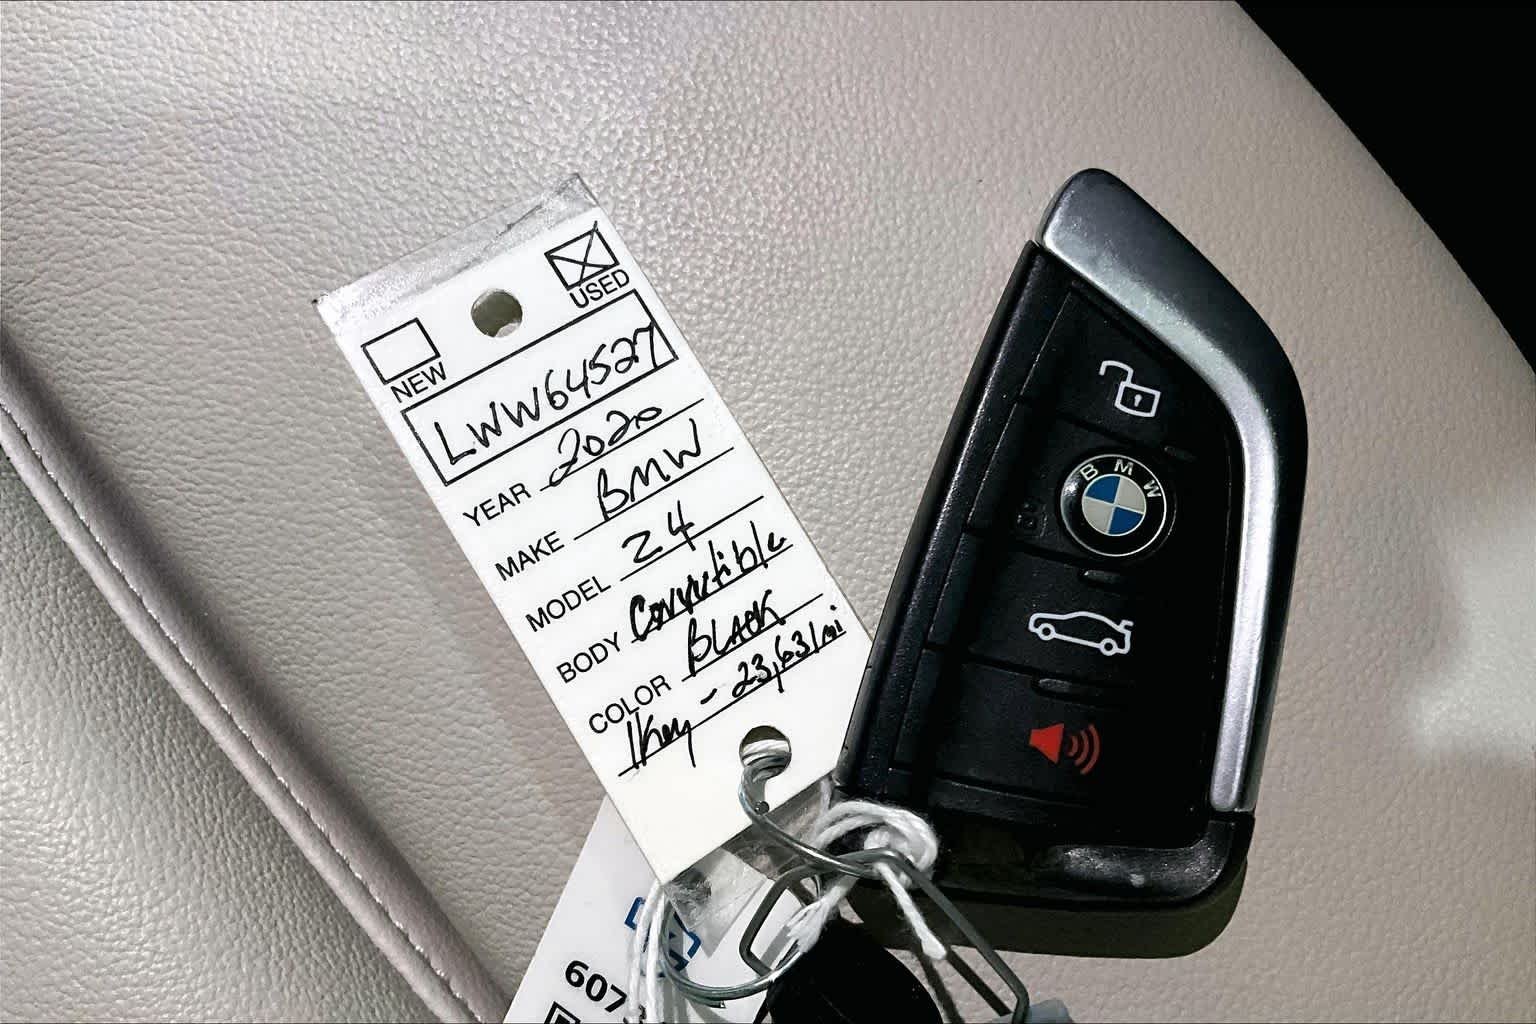 USED
NEW
LWW64527
YEAR 2020
MAKE BMW
MODEL Z4
BODY Convertible
COLOR BLACK
1 Key - 23,631 mi
BMW